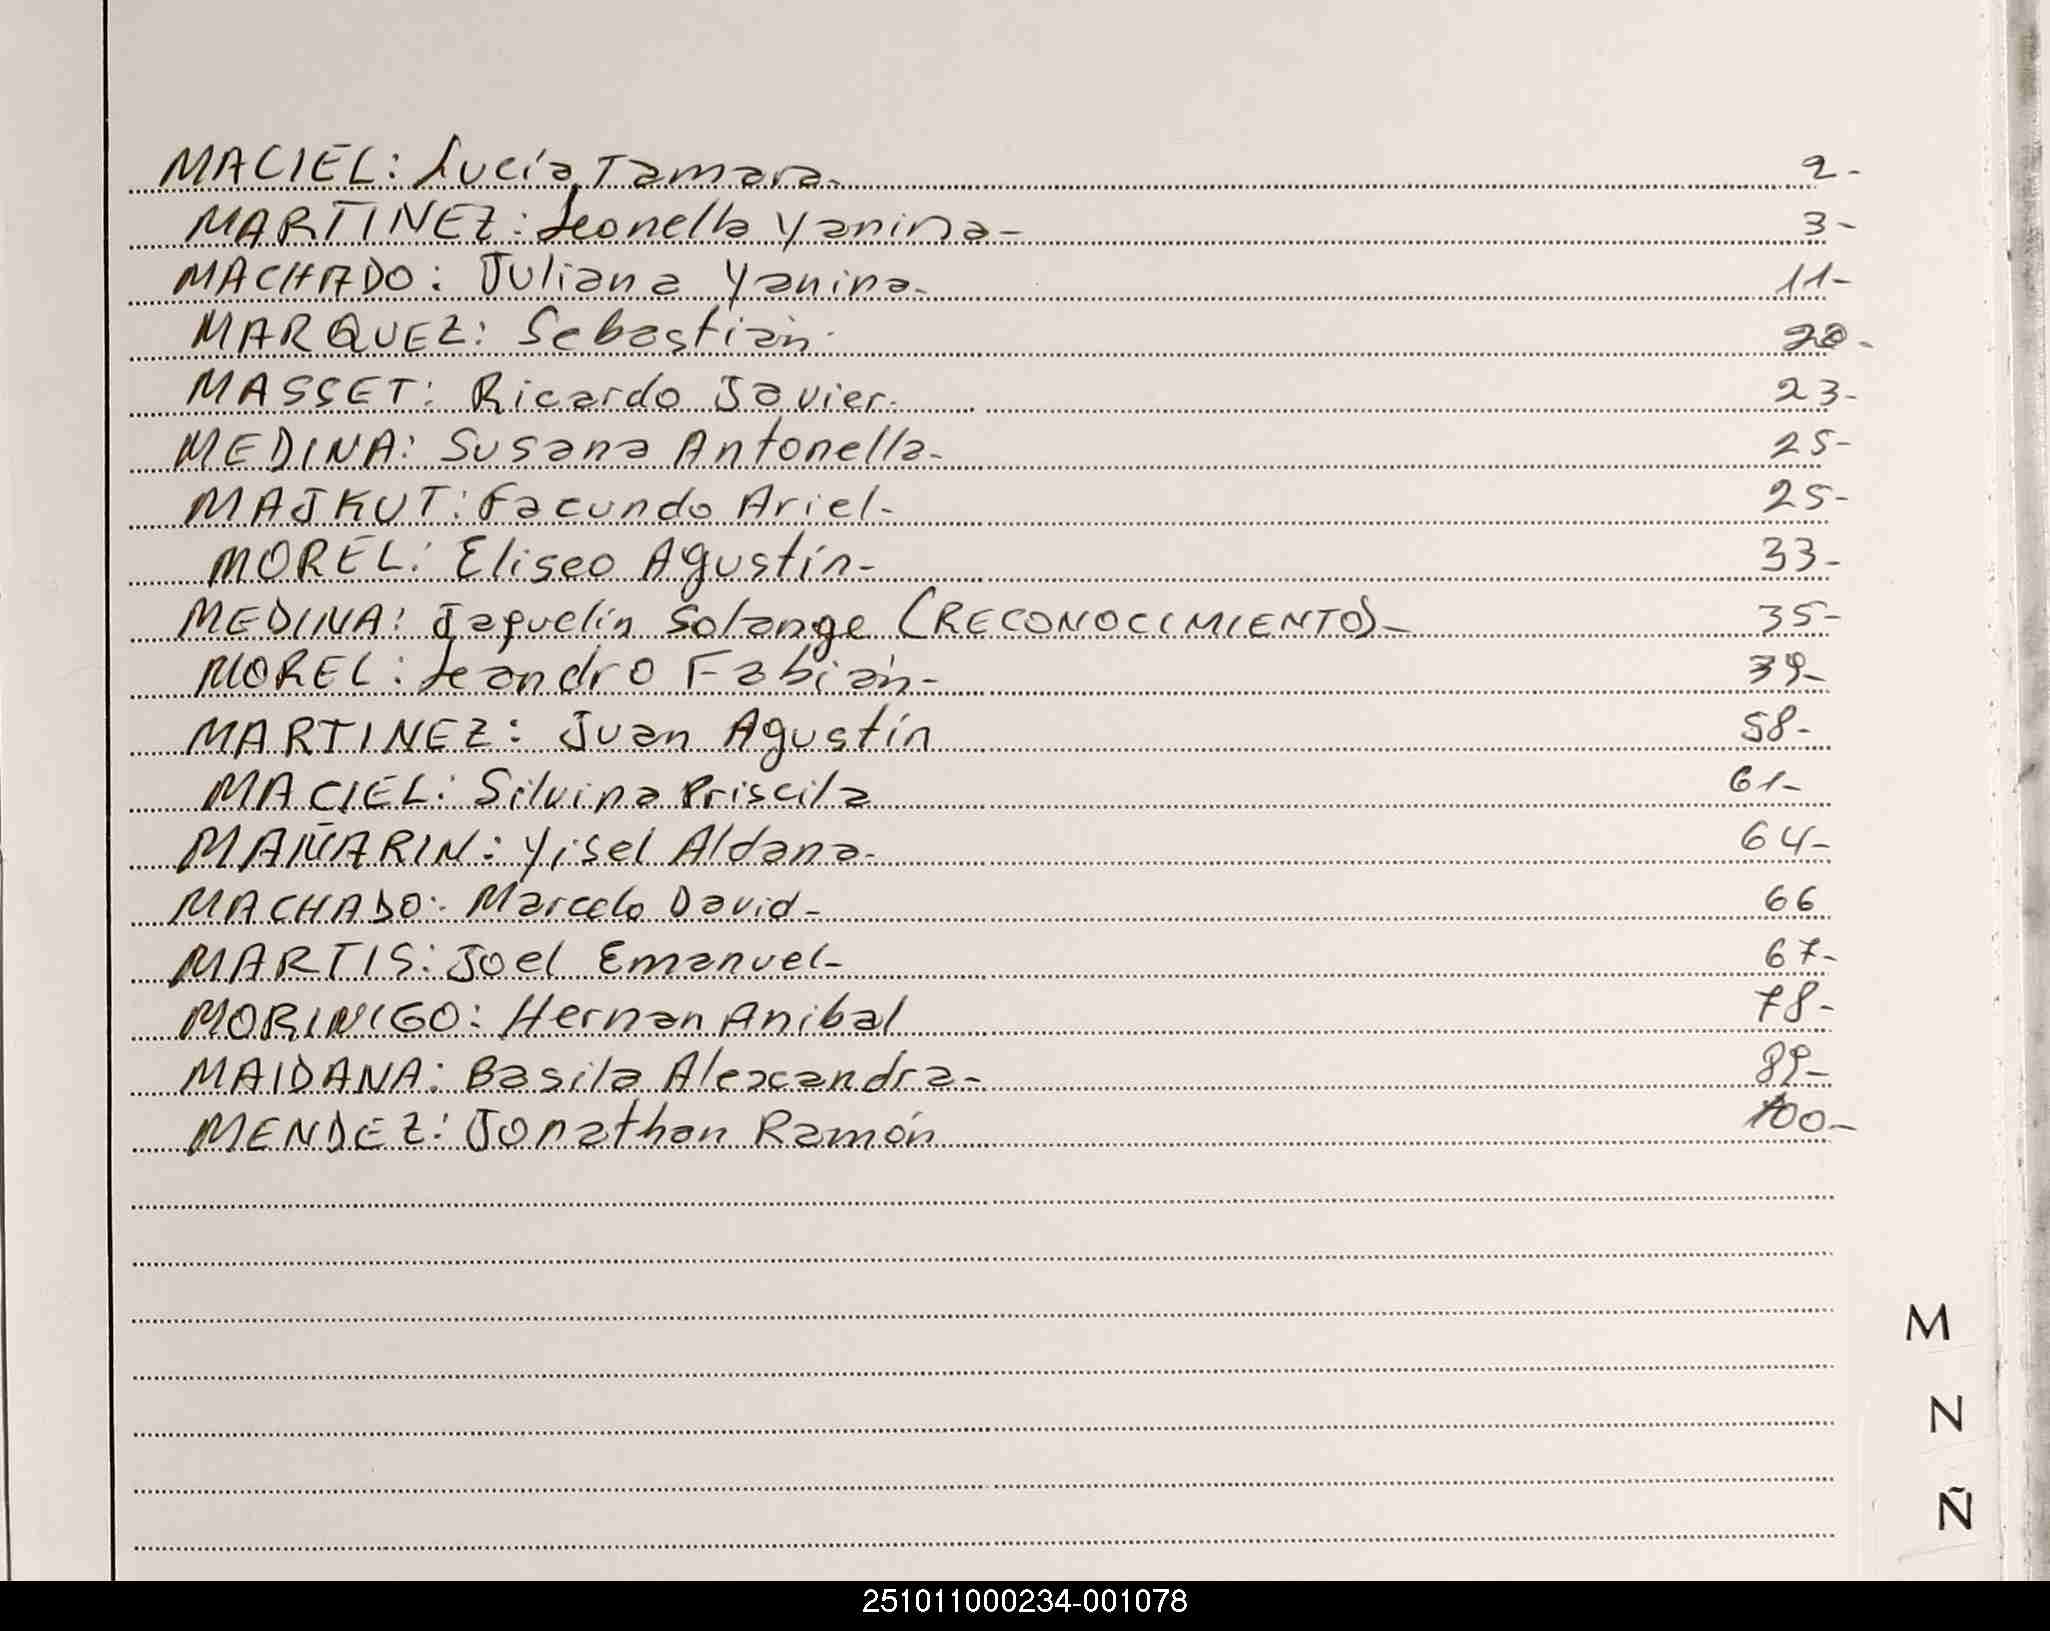 MACIEL: Lucía Tamara. 2-
MARTINEZ: Leonella Yanina- 3-
MACHADO: Juliana Yanina- 11-
MARQUEZ: Sebastián. 20-
MASSET: Ricardo Javier. 23-
MEDINA: Susana Antonella- 25-
MAJKUT: Facundo Ariel- 25-
MOREL: Eliseo Agustín- 33-
MEDINA: Jaquelin Solange (RECONOCIMIENTO)- 35-
MOREL: Leandro Fabián- 39-
MARTINEZ: Juan Agustín 58-
MACIEL: Silvina Priscila 61-
MAÑARIN: Yisel Aldana- 64-
MACHADO: Marcelo David- 66
MARTIS: Joel Emanuel- 67-
MORINIGO: Hernan Anibal 78-
MAIDANA: Basila Alexandra- 89-
MENDEZ: Jonathan Ramón 100-
M
N
Ñ
251011000234-001078